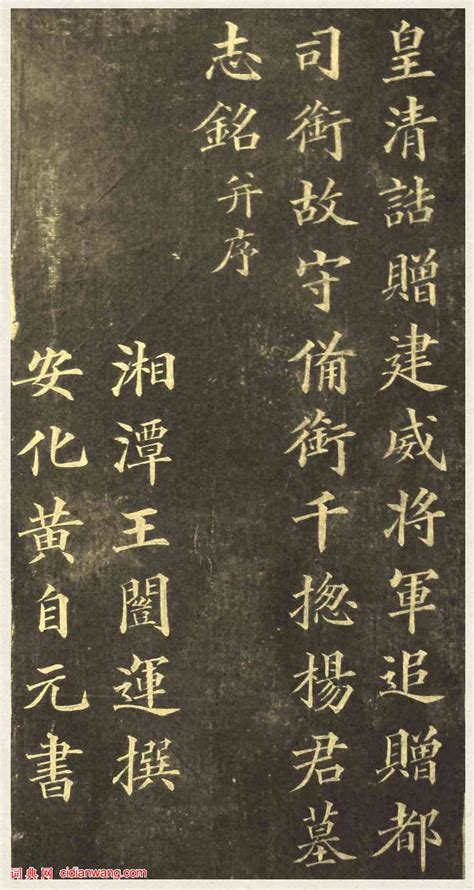 皇清誥贈建威將軍追贈都
司銜故守備銜千揔楊君墓
志銘并序
湘潭王闓運撰
安化黃自元書
词典网 cidianwang.com